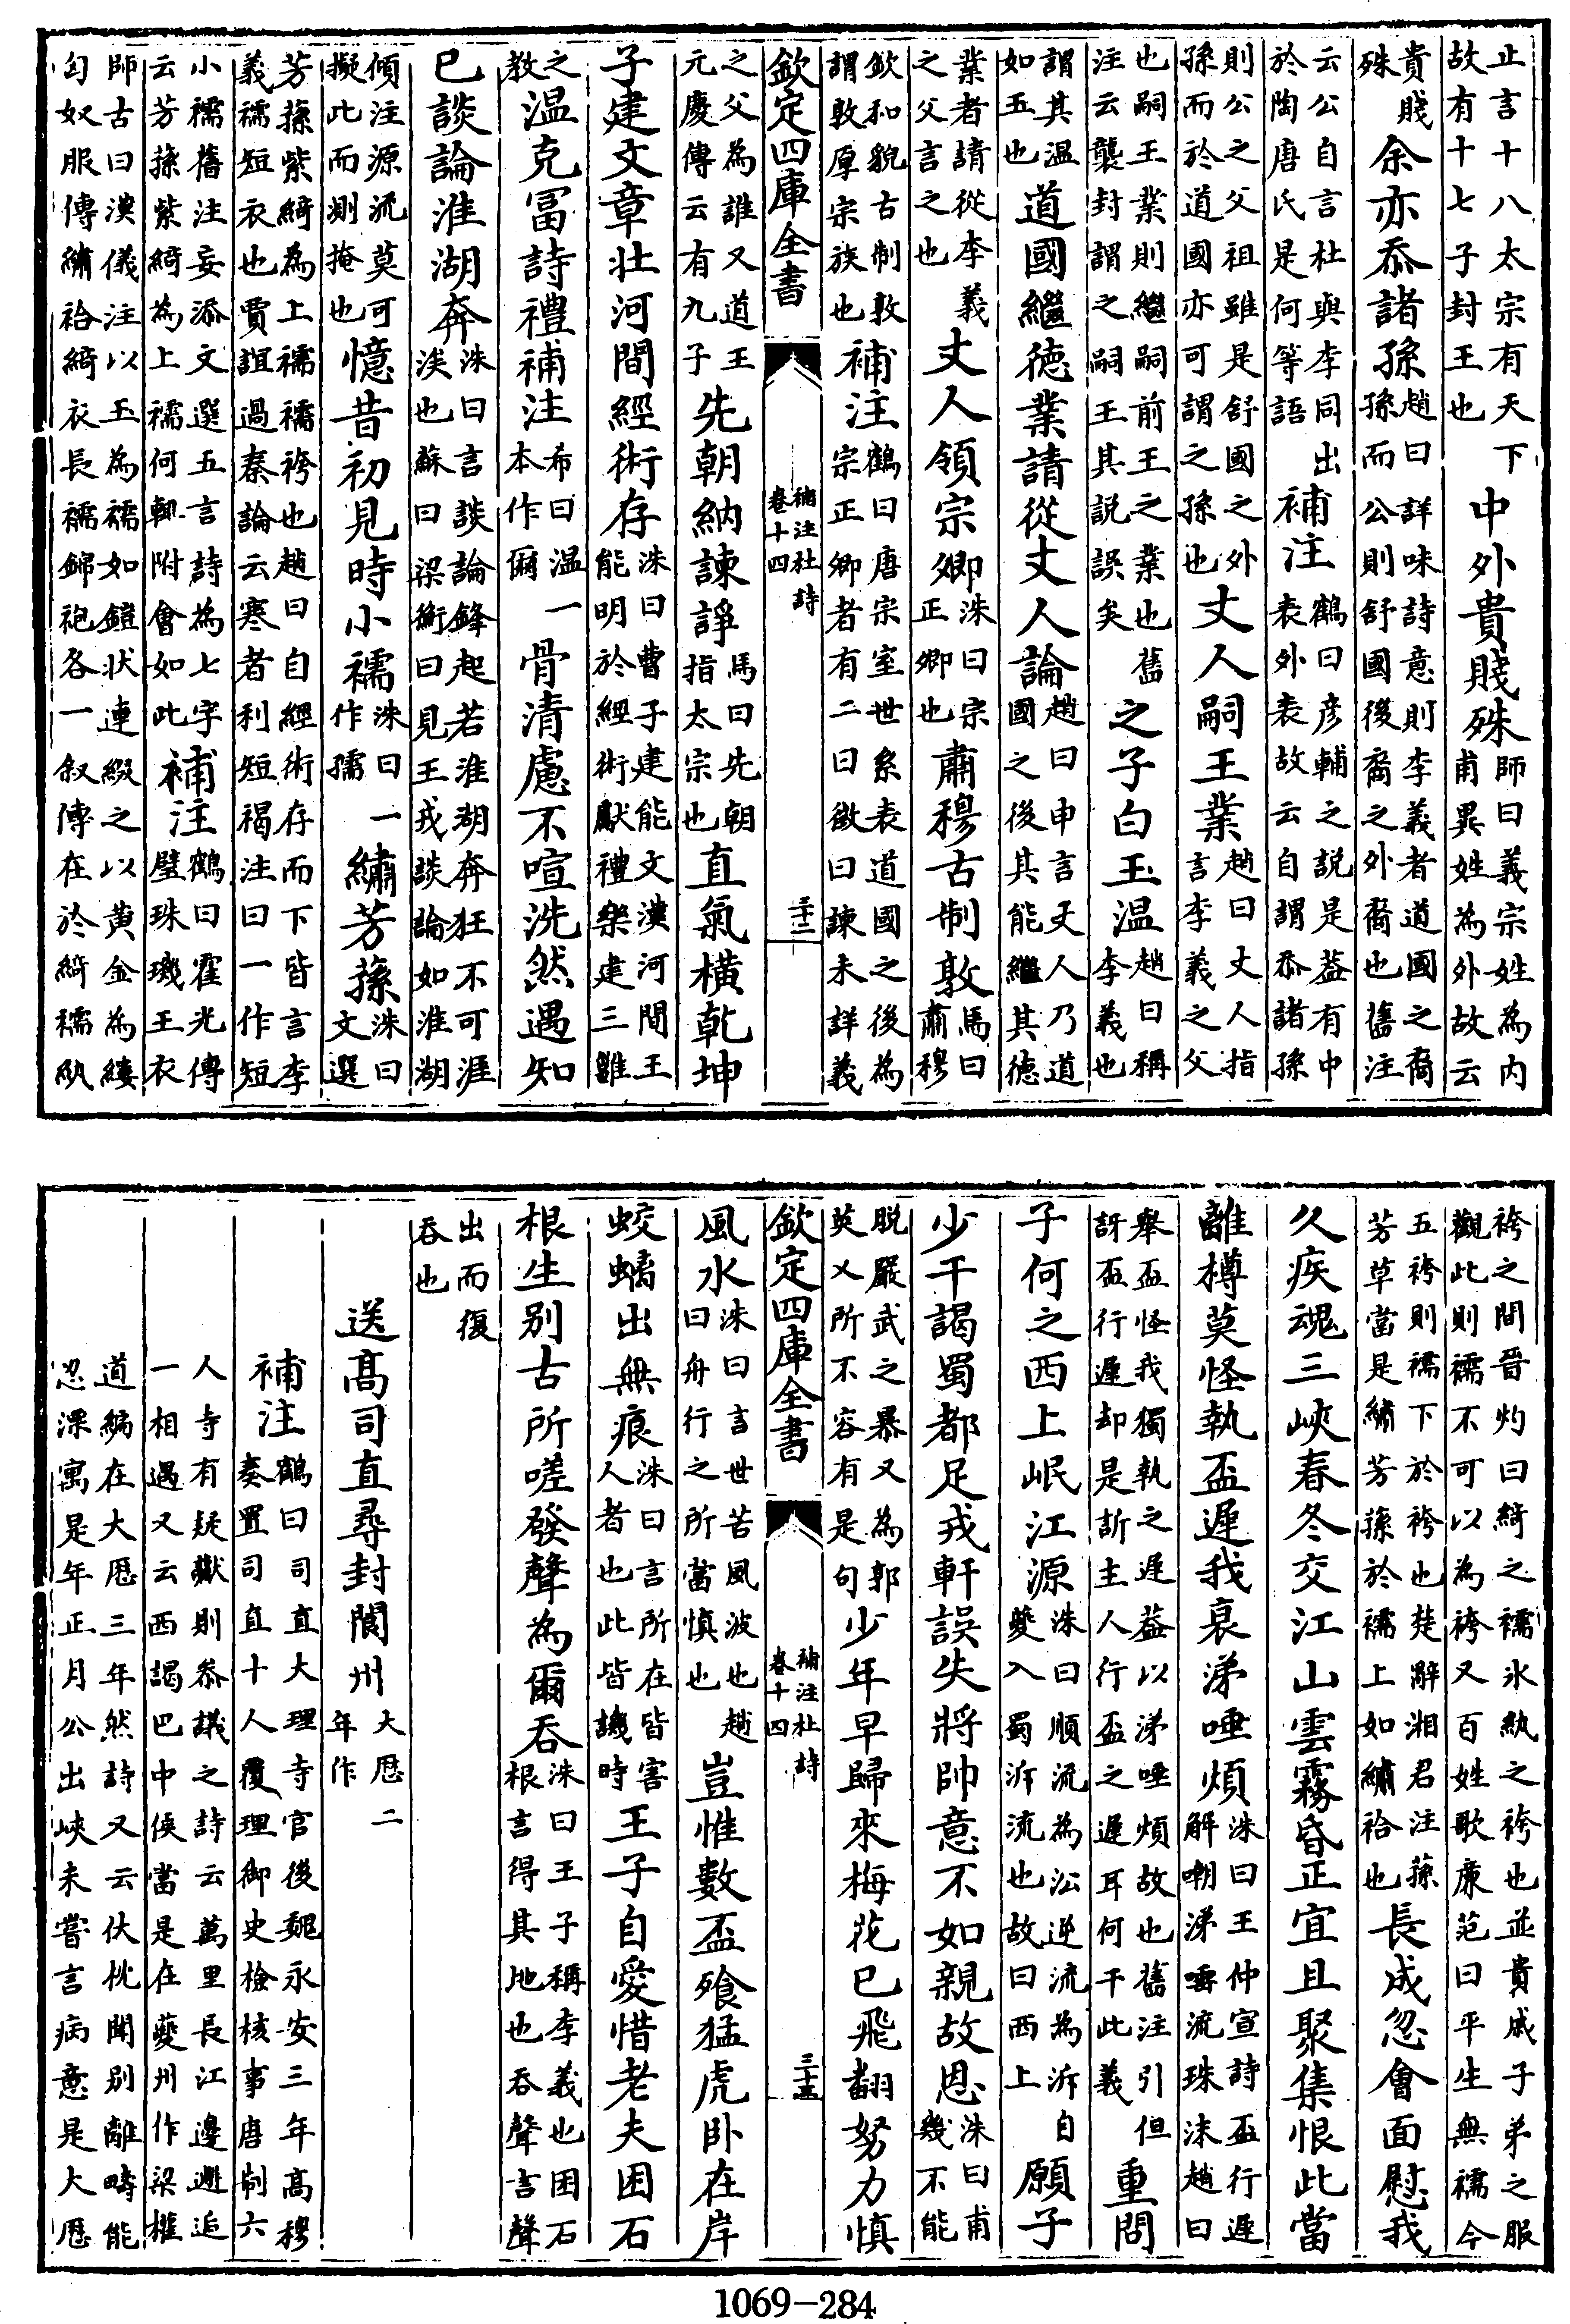 止言十八太宗有天下故有十七子封王也中外貴賤殊師曰義宗姓為内甫異姓為外故云
貴賤殊余亦忝諸孫趙曰詳味詩意則李義者道國之裔孫而公則舒國後裔之外裔也舊注
云公自言杜與李同出於陶唐氏是何等語補注鶴曰彦輔之說是葢有中表外表故云自謂忝諸孫
則公之父祖雖是舒國之外孫而於道國亦可謂之孫也丈人嗣王業趙曰丈人指言李義之父
也嗣王業則繼嗣前王之業也舊注云襲封謂之嗣王其説誤矣之子白玉温趙曰稱李義也
謂其温如五也道國繼徳業請從丈人論趙曰申言丈人乃道國之後其能繼其徳
業者請從李義之父言之也丈人領宗卿洙曰宗正卿也肅穆古制敦馬曰肅穆
欽和貌古制敦謂敦厚宗族也補注鶴曰唐宗室世系表道國之後為宗正卿者有二曰微曰諫未詳義
欽定四庫全書 補注杜詩卷十四 三十二
之父為誰又道王元慶傳云有九子先朝納諫諍馬曰先朝指太宗也直氣横乾坤
子建文章壮河間經術存洙曰曹子建能文漢河間王能明於經術獻禮樂建三雝
之教温克富詩禮補注希曰温一本作爾骨清慮不喧洗然遇知
已談論淮湖奔洙曰言談論鋒起若淮湖奔狂不可涯涘也蘇曰梁衡曰見王戎談論如淮湖
傾注源流莫可擬此而測掩也憶昔初見時小襦洙曰一作孺繡芳蓀洙曰文選
芳蓀紫綺為上襦襦袴也趙曰自經術存而下皆言李義襦短衣也賈誼過秦論云寒者利短褐注曰一作短
小襦舊注妄添文選五言詩為七字云芳蓀紫綺為上襦何輒附會如此補注鶴曰霍光傳璧珠璣玉衣
師古曰漢儀注以玉為襦如鎧状連綴之以黄金為縷匈奴服傳繡袷綺衣長襦錦袍各一叙傳在於綺襦紈
袴之間晉灼曰綺之襦氷紈之袴也並貴戚子弟之服觀此則襦不可以為袴又百姓歌廉范曰平生無襦今
五袴則襦下於袴也楚辭湘君注蓀芳草當是繡芳蓀於襦上如繡袷也長成忽會面慰我
久疾魂三峽春冬交江山雲霧昏正宜且聚集恨此當
離樽莫怪執盃遲我衰涕唾煩洙曰王仲宣詩盃行遲解嘲涕唾流珠沫趙曰
舉盃怪我獨執之遲葢以涕唾煩故也舊注引但訝盃行遲却是訢主人行盃之遲耳何干此義重問
子何之西上岷江源洙曰順流為㳂逆流為泝自夔入蜀泝流也故曰西上願子
少干謁蜀都足戎軒誤失將帥意不如親故恩洙曰甫幾不能
脱嚴武之暴又為郭英乂所不容有是句少年早歸來梅花已飛翻努力慎
欽定四庫全書 補注杜詩卷十四 三十三
風水洙曰言世苦風波也趙曰舟行之所當慎也豈惟數盃飱猛虎卧在岸
蛟螭出無痕洙曰言所在皆害人者也此皆譏時王子自愛惜老夫困石
根生别古所嗟發聲為爾吞洙曰王子稱李義也困石根言得其地也吞聲言聲
出而復吞也
送高司直尋封閬州大厯二年作
補注鶴曰司直大理寺官後魏永安三年高穆奏置司直十人覆理御史檢核事唐制六
人寺有疑獄則叅議之詩云萬里長江邊邂逅一相遇又云西謁巴中侯當是在夔州作梁權
道編在大厯三年然詩又云伏枕聞别離疇能忍深寓是年正月公出峽未嘗言病意是大厯
1069-284